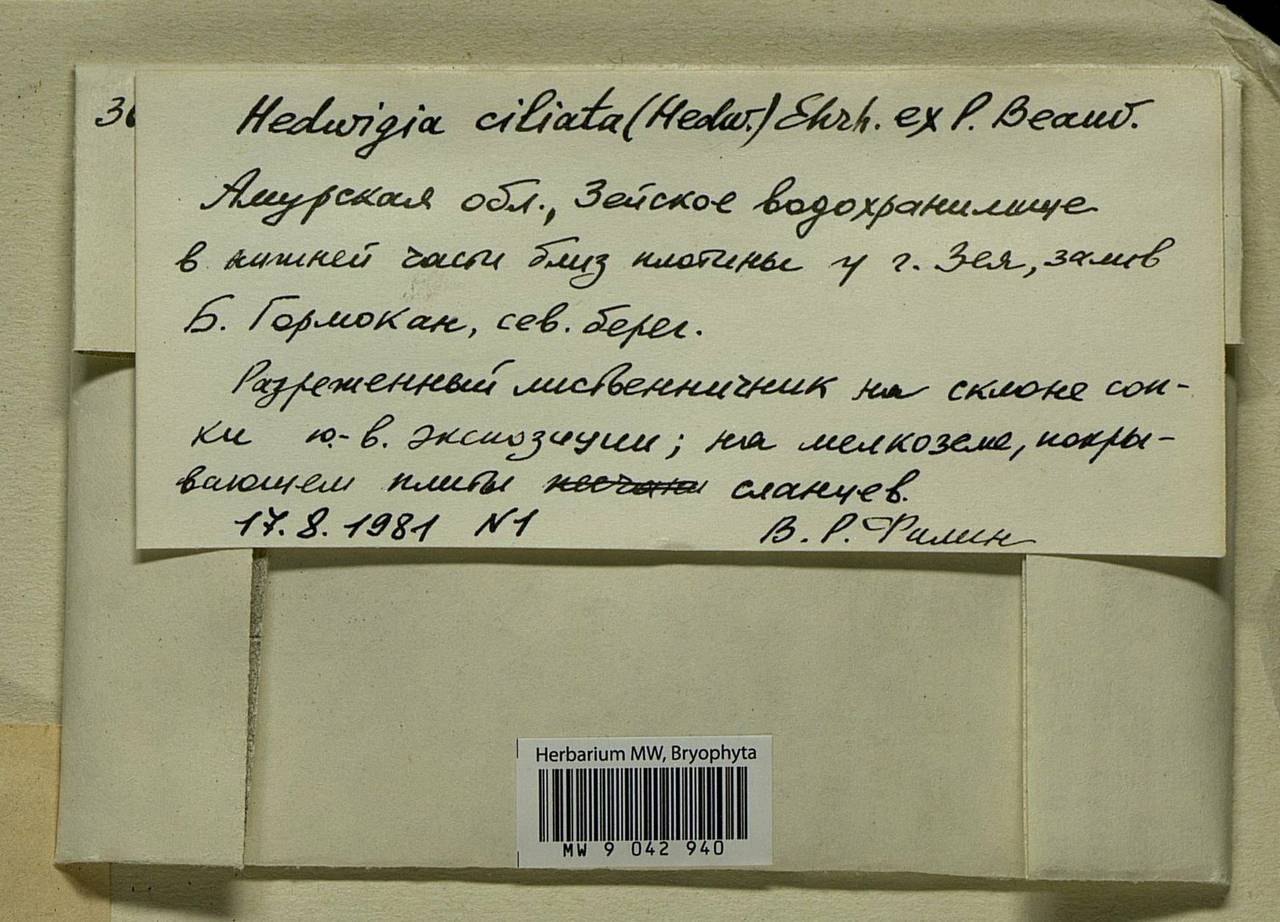 Hedwigia ciliata (Hedw.) Ehrh. ex P. Beauv.
Амурская обл., Зейское водохранилище
в нижней части близ плотины у г. Зея, залив
Б. Гормокан, сев. берег.
Разреженный лиственничник на склоне соп-
ки ю.-в. экспозиции; на мелкоземе, покры-
вающем плиты сланцев.
17.8.1981 N1 В. Р. Филин
Herbarium MW, Bryophyta
MW 9 042 940